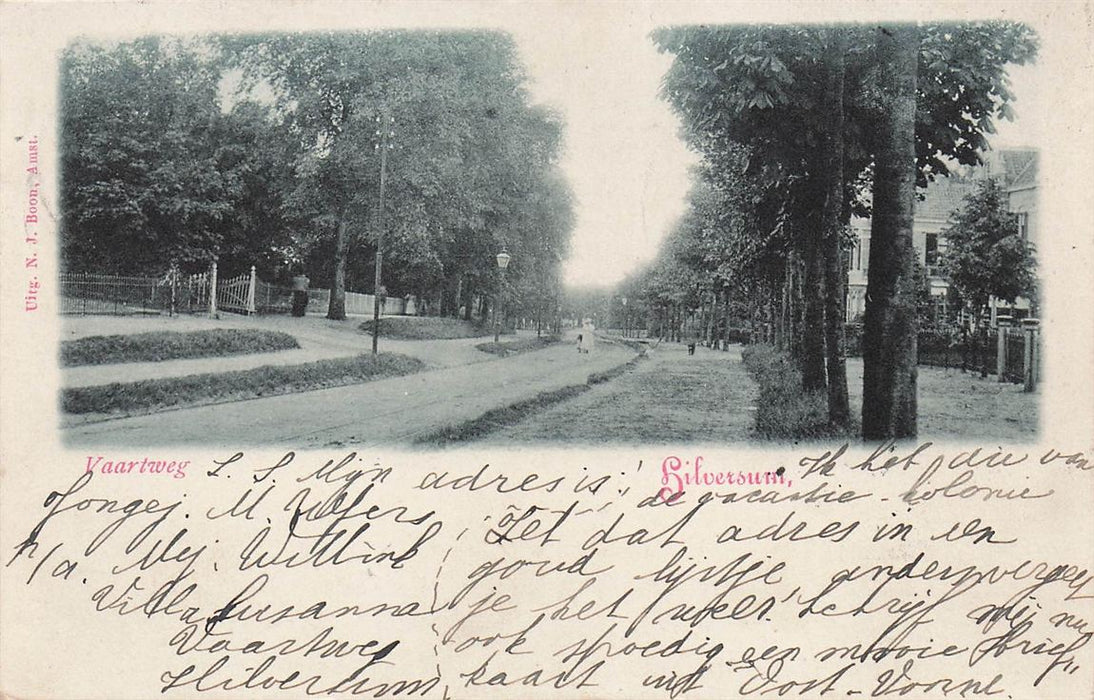 Uitg. N. J. Boon, Amst.
Vaartweg
Hilversum,
L. S. Mijn adres is:
Jongej. M. Ulfers
p/a. Mej. Willink
Villa Susanna
Vaartweg
Hilversum
Ik heb die van
de vacantie-kolonie
Zet dat adres in een
goud lijstje, anders vergeet
je het weer. Schrijf mij nu
ook spoedig een mooie "brief"
kaart uit Oost-Voorne